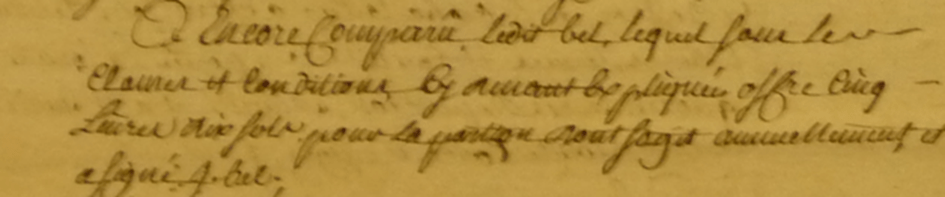 Encore Comparu ledit bel, lequel sous les
Clauses et Conditions Cy devant Expliquées offre Cinq
Livres dix sols pour la portion dont sagit annuellement, et
a signé J. bel.